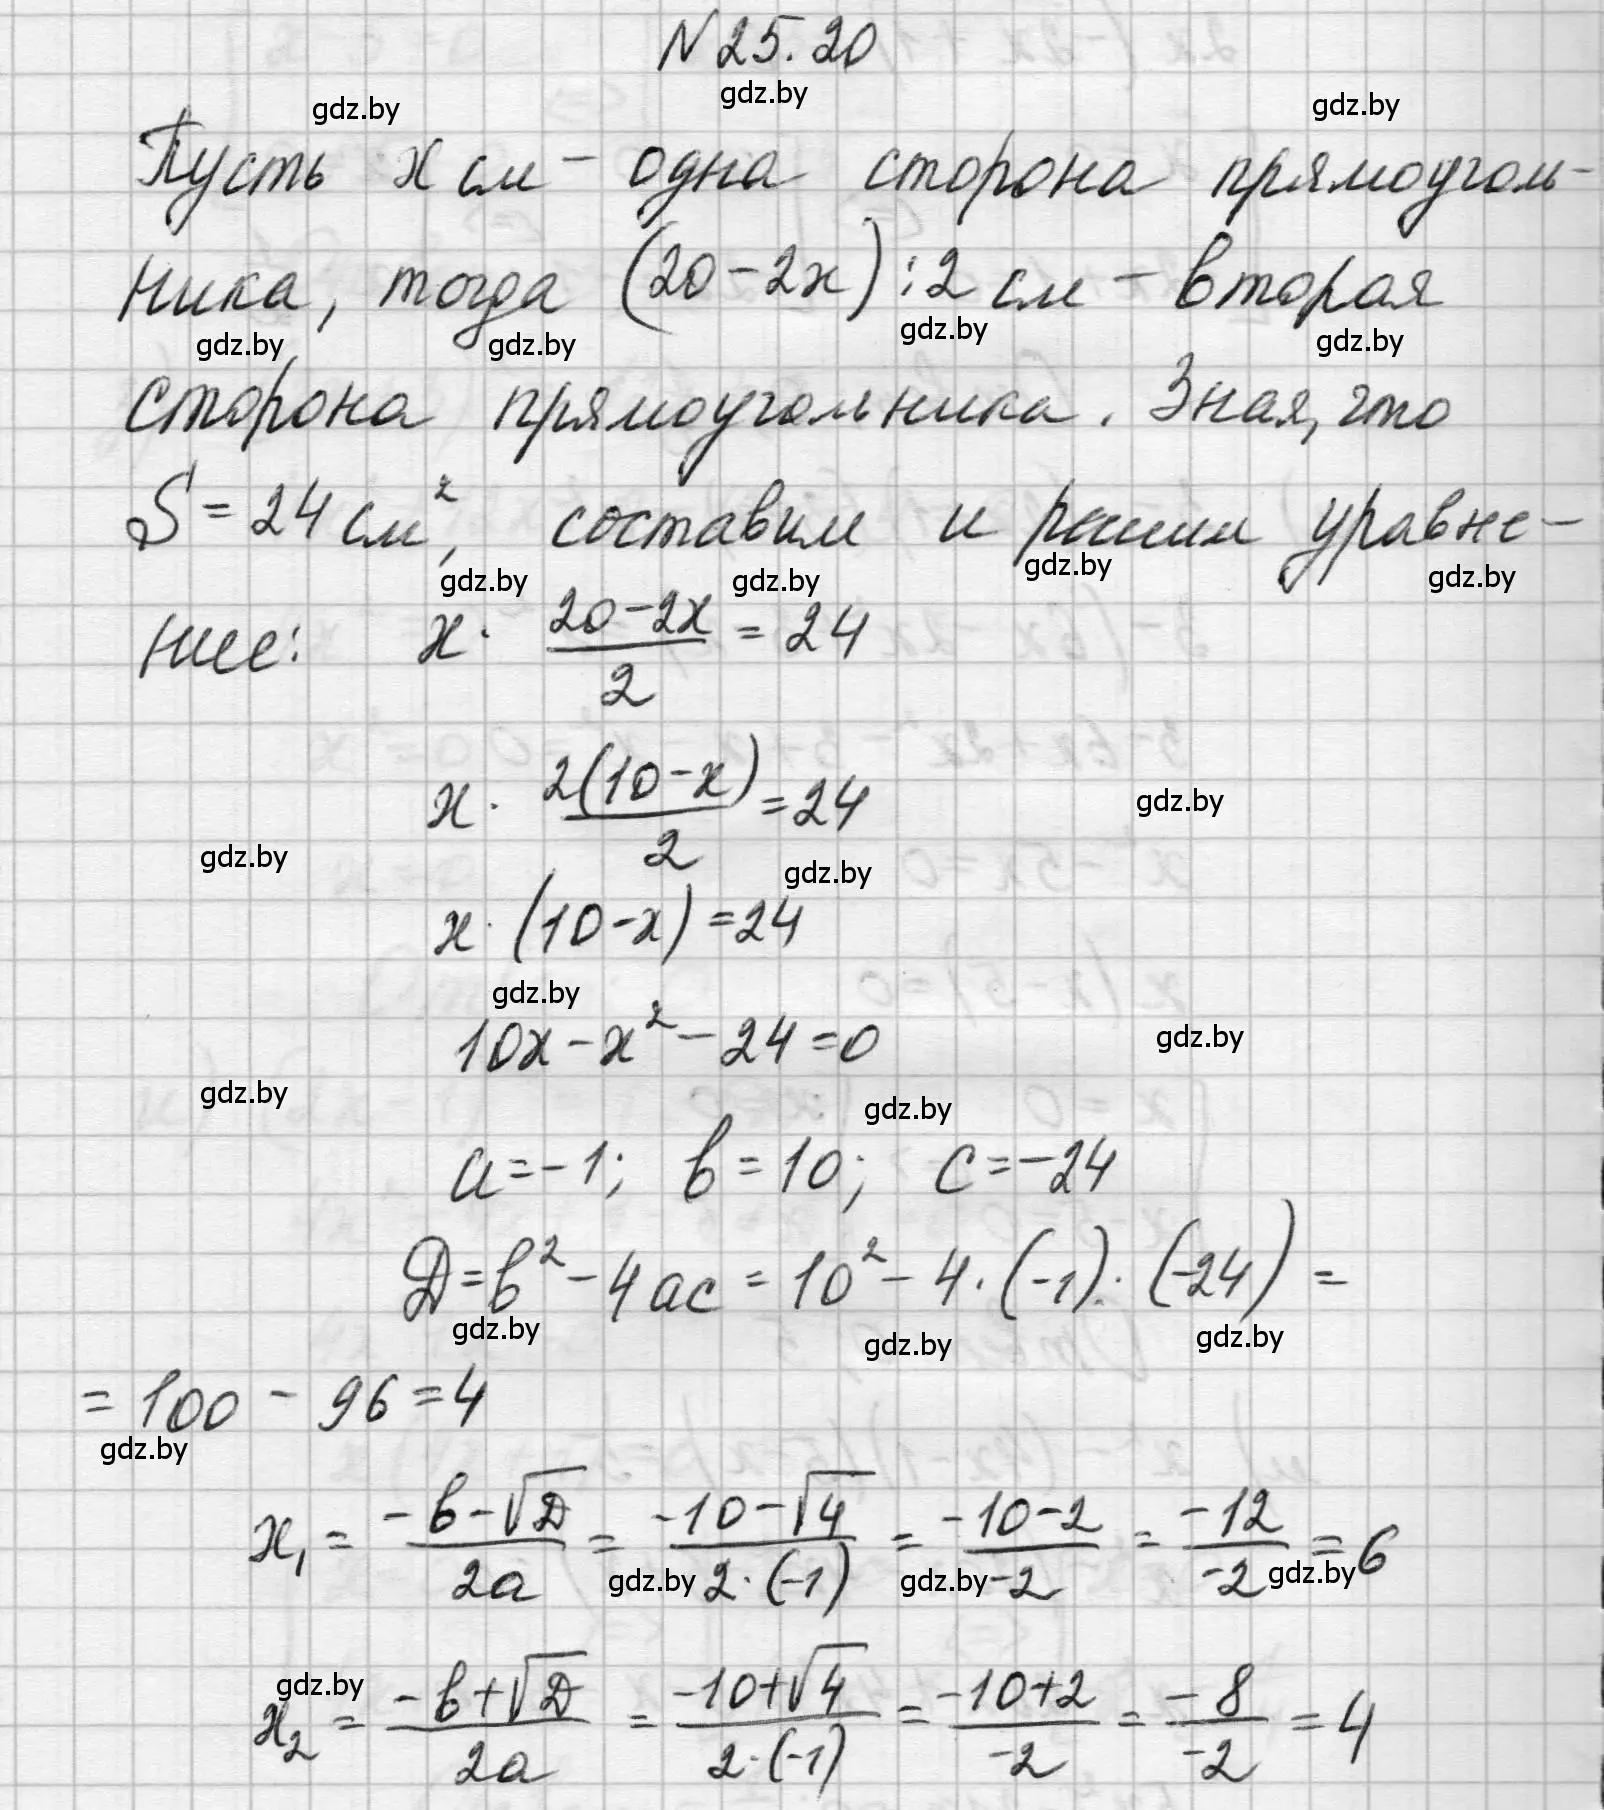 N 25.20
gdz.by
gdz.by gdz.by
Пусть x см - одна сторона прямоуголь-
ника, тогда (20-2x):2 см - вторая
gdz.by gdz.by gdz.by gdz.by
сторона прямоугольника. Зная, что
S = 24 см², составим и решим уравне-
gdz.by gdz.by gdz.by gdz.by
ние: x · \frac{20-2x}{2} = 24
x · \frac{2(10-x)}{2} = 24
gdz.by
gdz.by gdz.by
x · (10-x) = 24
gdz.by
10x - x² - 24 = 0
gdz.by
gdz.by gdz.by
a = -1; b = 10; c = -24
D = b² - 4ac = 10² - 4 · (-1) · (-24) =
gdz.by gdz.by gdz.by
= 100 - 96 = 4
gdz.by
x₁ = \frac{-b-√D}{2a} = \frac{-10-√4}{2·(-1)} = \frac{-10-2}{-2} = \frac{-12}{-2} = 6
gdz.by gdz.by gdz.by
gdz.by
x₂ = \frac{-b+√D}{2a} = \frac{-10+√4}{2·(-1)} = \frac{-10+2}{-2} = \frac{-8}{-2} = 4